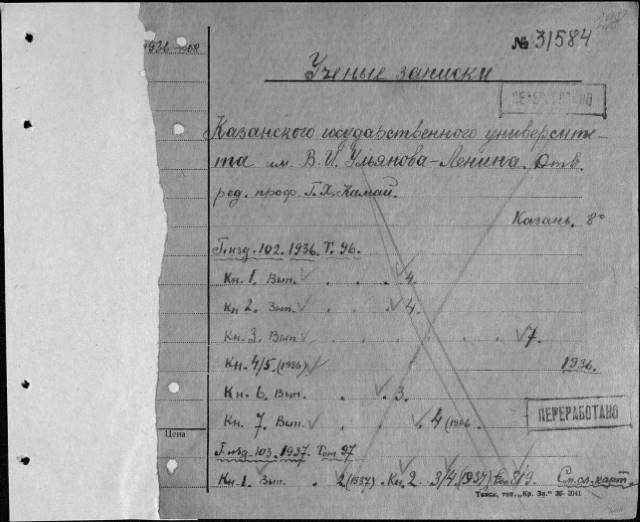 1936
№ 31584
Ученые записки
ПЕРЕРАБОТАНО
Казанского государственного университе-
та им. В. И. Ульянова-Ленина. Отв.
ред. проф. Г. Х. Камай.
Казань. 8°
Г. изд. 102. 1936. Т. 96.
Кн. 1. Вып. . . . 4.
Кн 2. Вып. . . . 4.
Кн. 3. Вып . . . 7.
Кн. 4/5. (1936) 1936.
Кн. 6. Вып. . . 3.
Кн. 7. Вып. . . 4 (1936
ПЕРЕРАБОТАНО
Цена
Г. изд. 103. 1937. Том 97
Кн. 1. Вып. . 2 (1937). Кн. 2. 3/4 (1937) 8/9. См. сл. карт.
Тамск. тип. „Кр. Зн.“ 36- 2041